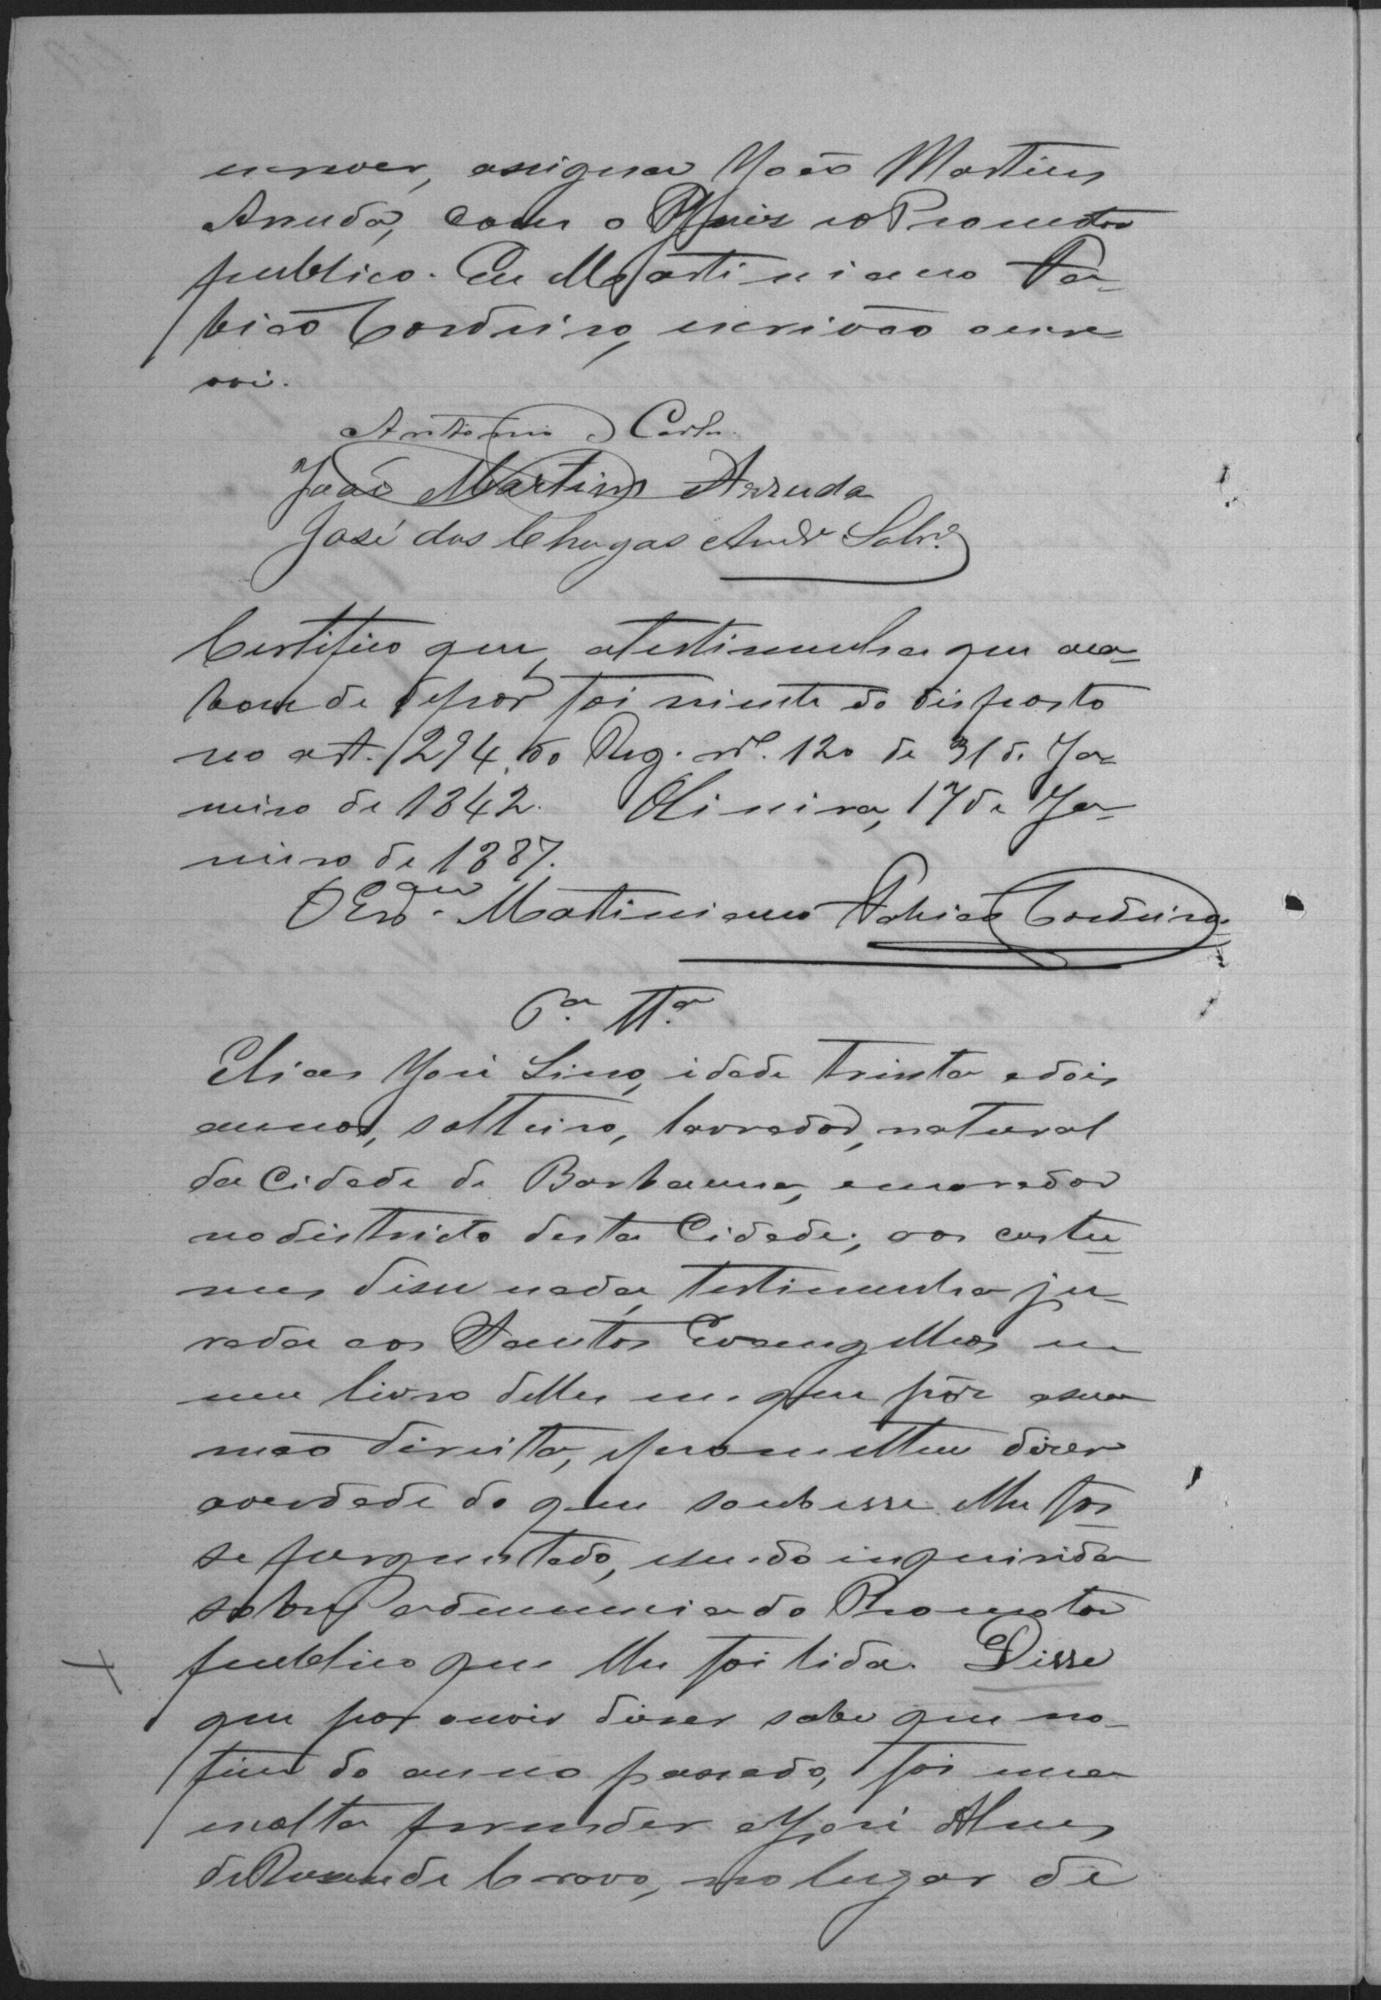 escrever, assigna João Martins
Arruda, com o Juiz e o Promotor
publico. Eu Martiniano Fa-
bião Cordeiro, escrivão escre-
vi.
Antonio Carlos
João Martins Arruda
José das Chagas Andr.e Sobr.o
Certifico que, a testimunha que aca-
bou de depôr foi sciente do disposto
no art. 294, do Reg. n.º 120 de 31 de Ja-
neiro de 1842. Oliveira, 17 de Ja-
neiro de 1887.
O Esc.am Martiniano Fabião Cordeiro
6.a Tt.a
Elias José Lino, idade trinta e dois
annos, solteiro, lavrador, natural
da Cidade de Barbacena, e morador
no districto desta Cidade; aos costu-
mes disse nada, testimunha ju-
rada aos Santos Evangelhos em
um livro delles em que pôz a sua
mão direita, e prometteu dizer
a verdade do que soubesse e lhe fos-
se perguntado, e sendo inquirida
sobre a denuncia do Promotor
publico que lhe foi lida. Disse
que por ouvir dizer sabe que no
fim do anno passado, foi uma
escolta prender a José Alves
de Resende Cravo, no lugar de